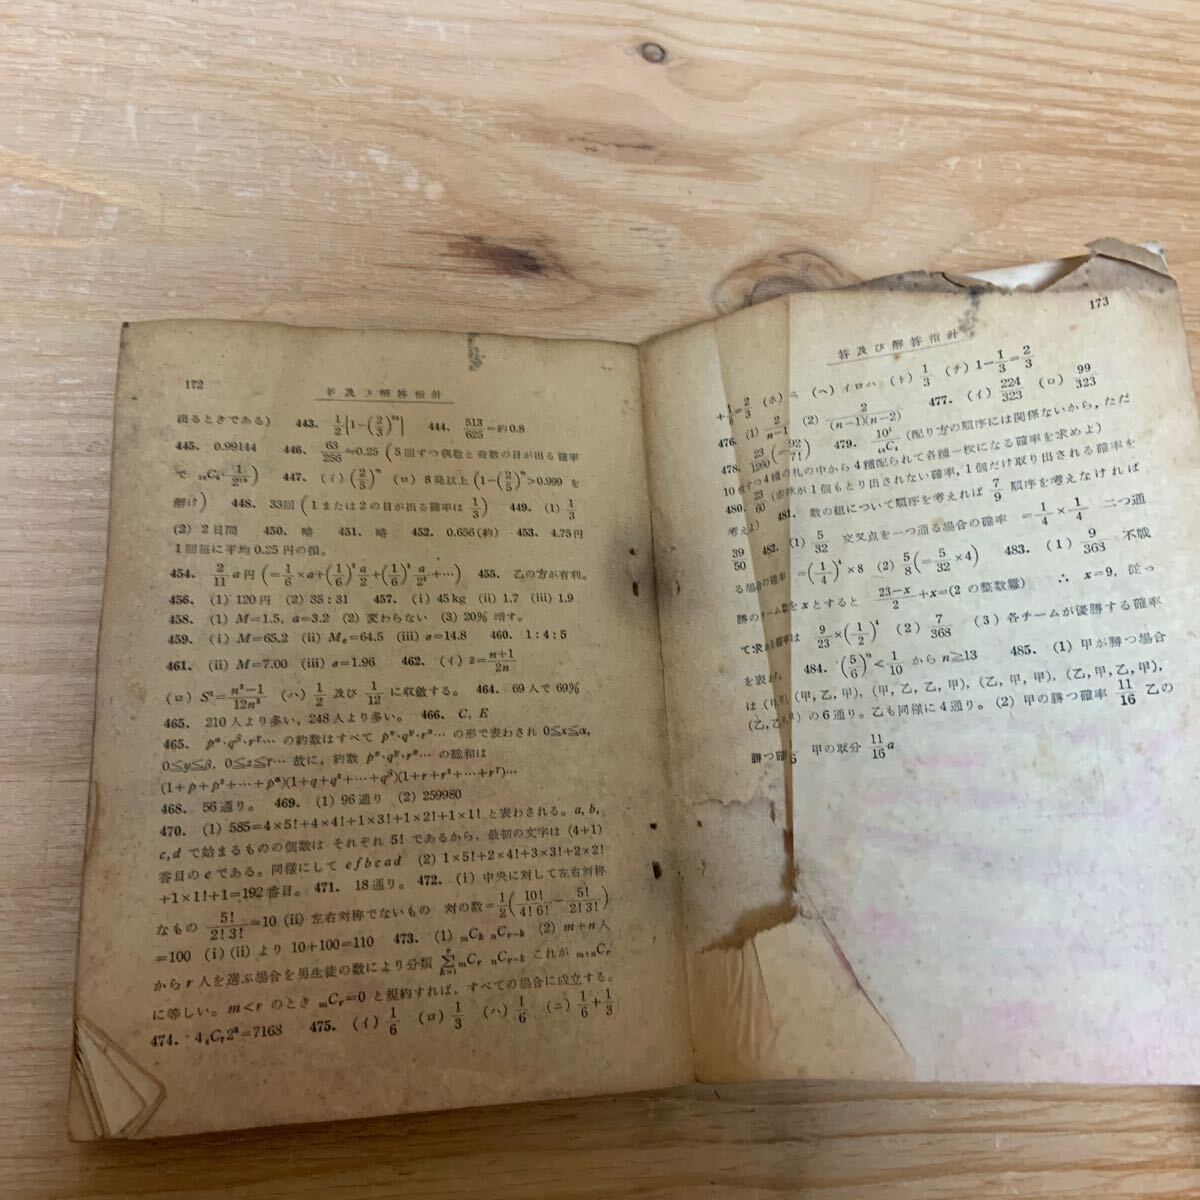 172
答及び解答指針
出るときである) 443. 1/2{1-(2/3)^{2n}} 444. 513/625=約0.8
445. 0.99144 446. 63/256≒0.25 (5回ずつ偶数と奇数の目が出る確率
で ₁₀C₅·1/2¹⁰) 447. (イ) (2/5)ⁿ (ロ) 8発以上 (1-(2/5)ⁿ>0.999 を
解け) 448. 33回 (1または2の目が出る確率は 1/3) 449. (1) 1/3
(2) 2日間 450. 略 451. 略 452. 0.656(約) 453. 4.75円
1回毎に平均0.25円の損。
454. 2/11 a円 (=1/6×a+(1/6)² a/2+(1/6)³ a/2²+…) 455. 乙の方が有利。
456. (1) 120円 (2) 35:31 457. (i) 45kg (ii) 1.7 (iii) 1.9
458. (1) M=1.5, a=3.2 (2) 変わらない (3) 20% 増す。
459. (i) M=65.2 (ii) Mₑ=64.5 (iii) σ=14.8 460. 1:4:5
461. (ii) M=7.00 (iii) σ=1.96 462. (イ) x̄=(n+1)/2n
(ロ) S²=(n²-1)/12n² (ハ) 1/2 及び 1/12 に収斂する。 464. 69人で69%
465. 210人より多い, 248人より多い。 466. C, E
465. p^α·q^β·r^γ… の約数はすべて p^x·q^y·r^z… の形で表わされ 0≦x≦α,
0≦y≦β, 0≦z≦γ… 故に, 約数 p^x·q^y·r^z… の総和は
(1+p+p²+…+p^α)(1+q+q²+…+q^β)(1+r+r²+…+r^γ)…
468. 56通り。 469. (1) 96通り (2) 259980
470. (1) 585=4×5!+4×4!+1×3!+1×2!+1×1! と表わされる。a, b,
c, d で始まるものの個数は それぞれ 5! であるから, 最初の文字は (4+1)
番目の e である。同様にして e f b c a d (2) 1×5!+2×4!+3×3!+2×2!
+1×1!+1=192番目。 471. 18通り。 472. (i) 中央に対して左右対称
なもの 5!/(2!3!)=10 (ii) 左右対称でないもの 対の数=1/2(10!/(4!6!)-5!/(2!3!))
=100 (i)(ii) より 10+100=110 473. (1) ₘCₖ ₙCᵣ₋ₖ (2) m+n人
から r 人を選ぶ場合を男生徒の数により分類 Σ_{k=1}^{r} ₘCᵣ ₙCᵣ₋ₖ これが ₘ₊ₙCᵣ
に等しい。m<r のとき ₘCᵣ=0 と規約すれば, すべての場合に成立する。
474. 4 ₈C₇2⁶=7168 475. (イ) 1/6 (ロ) 1/3 (ハ) 1/6 (ニ) 1/6+1/3
173
答及び解答指針
+1/6=2/3 (ホ) ニ (ヘ) イロハ (ト) 1/3 (チ) 1-1/3=2/3
476. (1) 2/(n-1) (2) 2/((n-1)(n-2)) 477. (イ) 224/323 (ロ) 99/323
478. 23/1260 479. 10⁴/₄₀C₄ (配り方の順序には関係ないから, ただ
10枚ずつ4種の札の中から4種配られて各種一枚になる確率を求めよ)
480. 23/60 (赤球が1個もとり出されない確率, 1個だけ取り出される確率を
考えよ) 481. 数の組について順序を考えれば 7/9 順序を考えなければ
39/50 482. (1) 5/32 交叉点を一つ通る場合の確率 =1/4×1/4 二つ通
る場合の確率 =(1/4)⁴×8 (2) 5/8(=5/32×4) 483. (1) 9/368 不戦
勝のチーム数を x とすると (23-x)/2+x=(2 の整数羃) ∴ x=9, 従っ
て求める確率は 9/23×(1/2)⁴ (2) 7/368 (3) 各チームが優勝する確率
を表わ 484. (5/6)ⁿ<1/10 から n≧13 485. (1) 甲が勝つ場合
は (甲, 甲), (甲, 乙, 甲), (甲, 乙, 乙, 甲), (乙, 甲, 甲), (乙, 甲, 乙, 甲),
(乙, 乙, 甲) の6通り。乙も同様に4通り。(2) 甲の勝つ確率 11/16 乙の
勝つ確 甲の取分 11/16 a